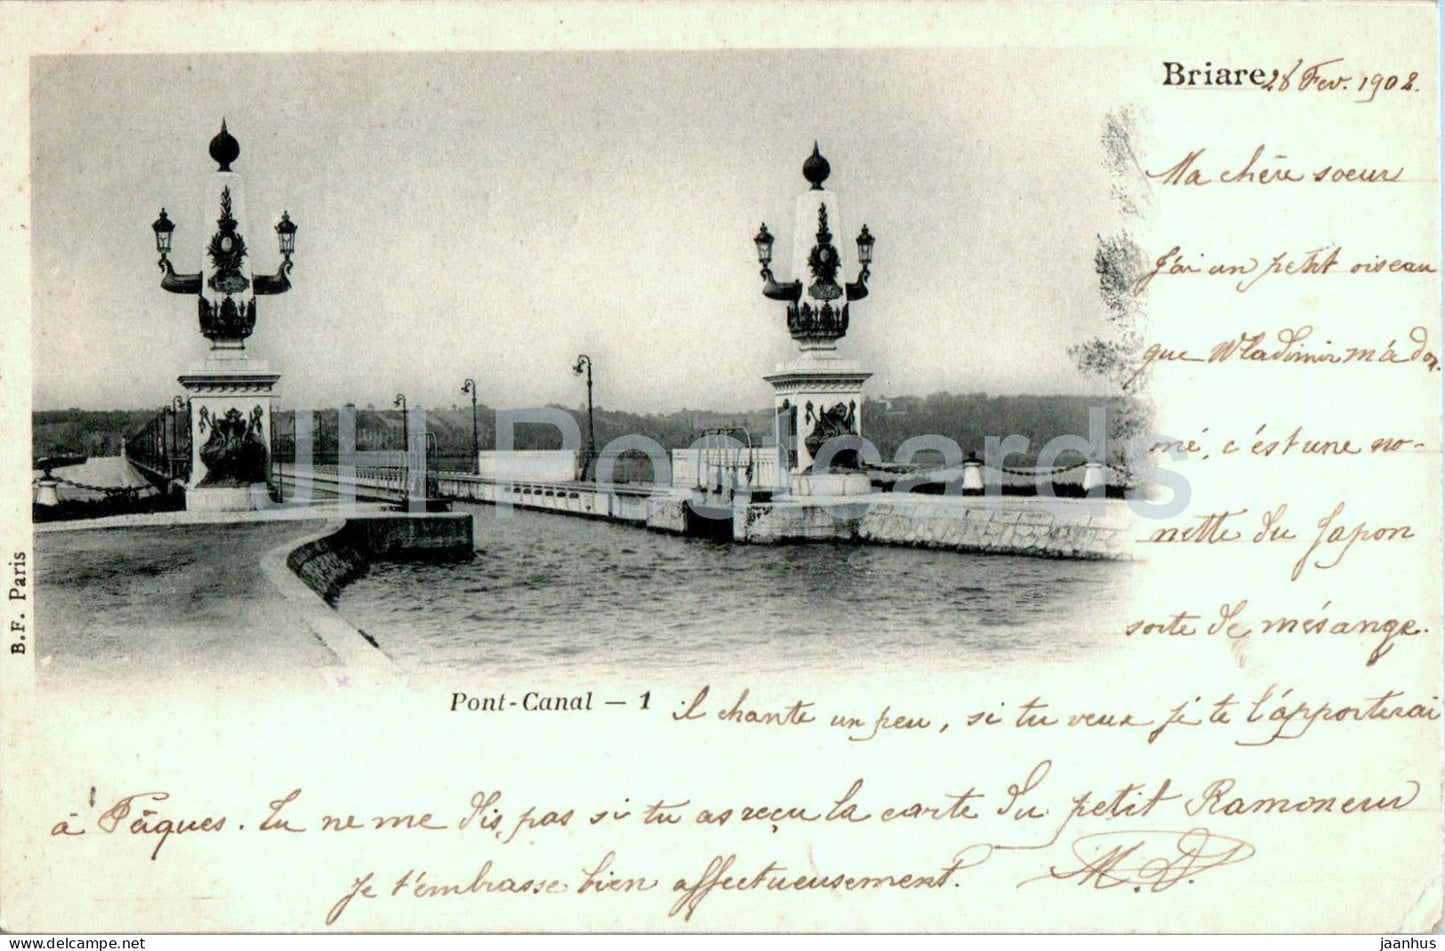 Briare 28 Fev. 1902.
Ma chère soeur
J'ai un petit oiseau
que Wladimir m'a don
né, c'est une no-
nette du Japon
sorte de mésange.
Pont-Canal — 1 il chante un peu, si tu veux je te l'apporterai
à Pâques. Tu ne me dis pas si tu as reçu la carte du petit Ramoneur
je t'embrasse bien affectueusement. M.D.
B.F. Paris
JH Postcards
www.delcampe.net
jaanhus